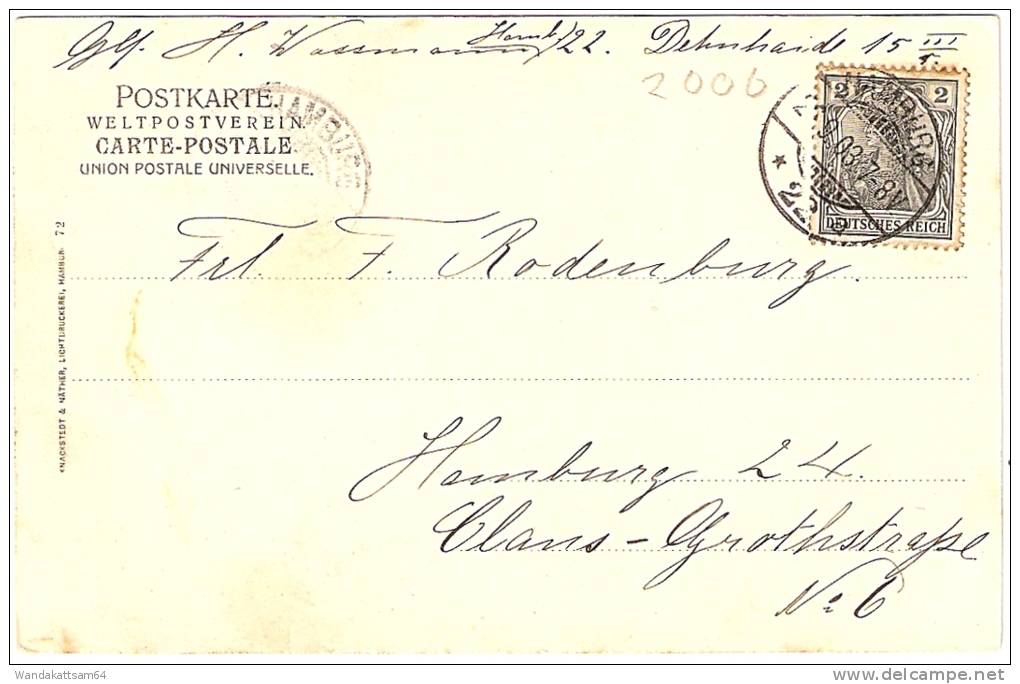 H. Wassmann Hamb/22. Dehnhaide 15 III
2006
POSTKARTE.
WELTPOSTVEREIN.
CARTE-POSTALE.
UNION POSTALE UNIVERSELLE.
HAMBURG
HAMBURG
2 2
DEUTSCHES REICH
* 22
Frl. F. Rodenburg.
KNACKSTEDT & NÄTHER, LICHTDRUCKEREI, HAMBURG 72
Hamburg 24.
Claus-Grothstraße
No 6
Wandakattsam64
www.delcampe.net